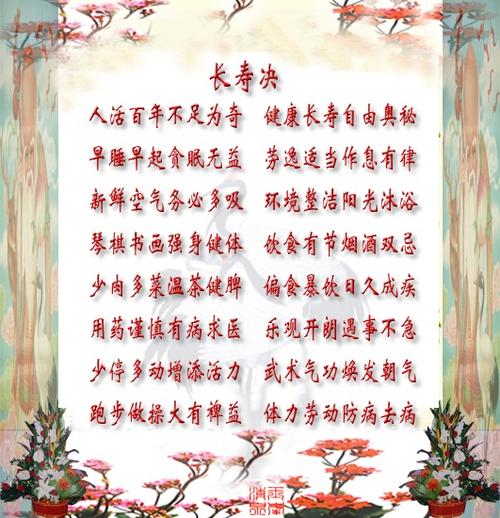 长寿决
人活百年不足为奇 健康长寿自由奥秘
早睡早起贪眠无益 劳逸适当作息有律
新鲜空气务必多吸 环境整洁阳光沐浴
琴棋书画强身健体 饮食有节烟酒双忌
少肉多菜温茶健脾 偏食暴饮日久成疾
用药谨慎有病求医 乐观开朗遇事不急
少停多动增添活力 武术气功焕发朝气
跑步做操大有裨益 体力劳动防病去病